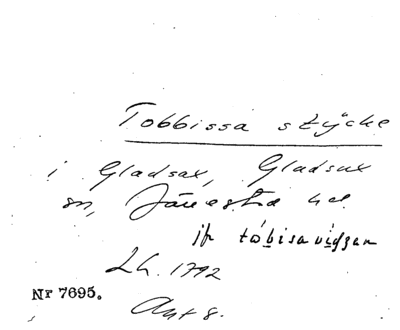 Tobbissa stycke
i Gladsax, Gladsax
sn, Järrestad hd.
jfr tóbisavídgan
Lh. 1792
Akt 8.
Nr 7695.